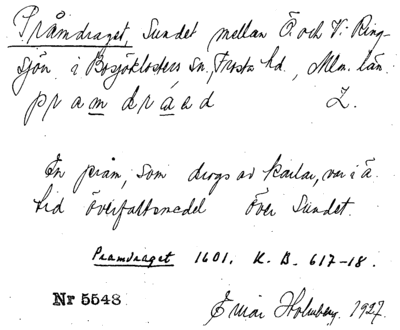 Pråmdraget, Sundet mellan Ö. och V. Ring-
sjön i Bosjöklosters sn, Frosta hd, Mlm. län.
pramdråed Z.
En pråm, som drogs av karlar, var i ä.
tid överfartsmedel över Sundet.
Pramdraget 1601. K. B. 617-18.
Nr 5548 Einar Holmberg. 1927.